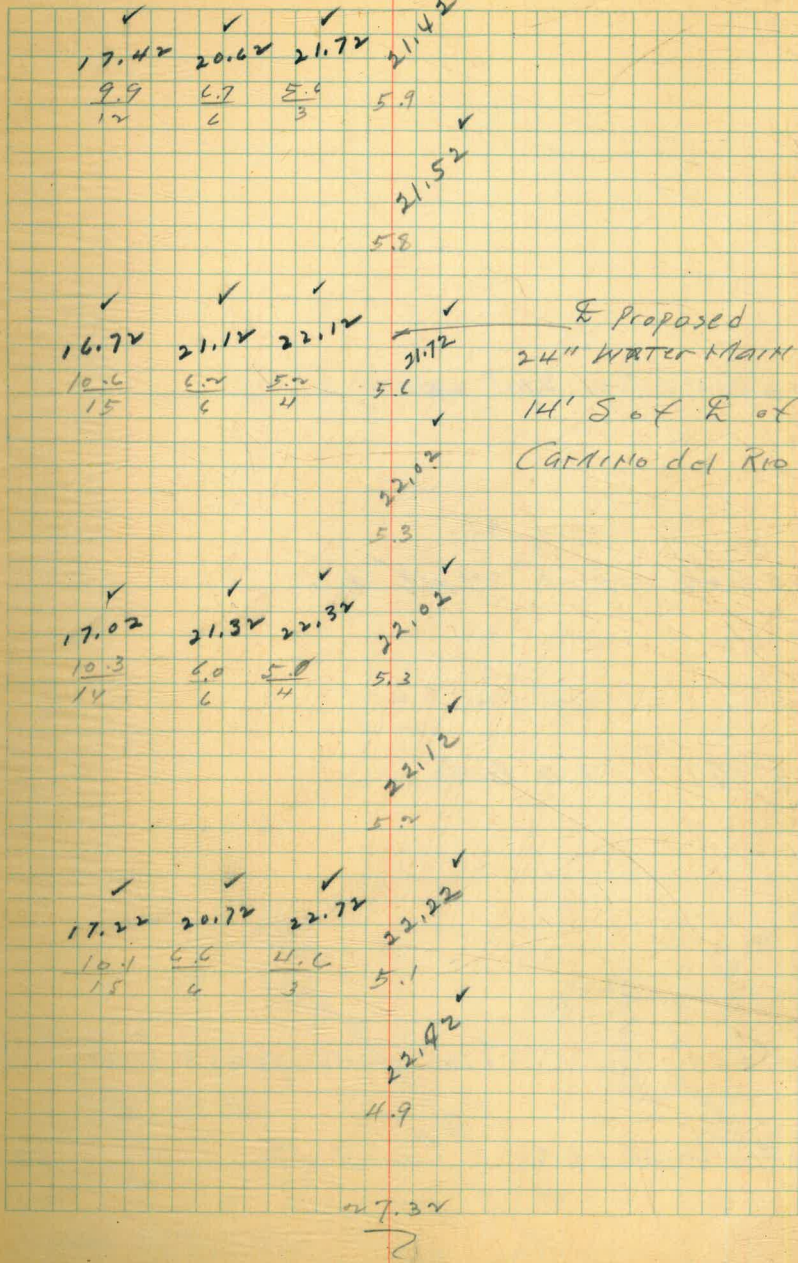 17.42 20.62 21.72 21.42
9.9 6.7 5.6 5.9
12 6 3
21.52
5.8
16.72 21.12 22.12 21.72
10.6 6.2 5.2 5.6
15 6 4
℄ Proposed
24" Water Main
14' S of ℄ of
Camino del Rio
22.02
5.3
17.02 21.32 22.32 22.02
10.3 6.0 5.0 5.3
14 6 4
22.12
5.2
17.22 20.72 22.72 22.22
10.1 6.6 4.6 5.1
15 6 3
22.42
4.9
27.32